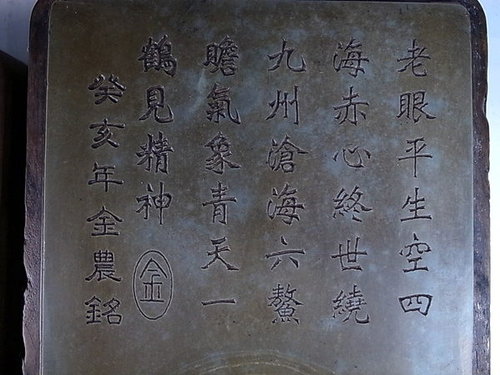 老眼平生空四
海赤心終世繞
九州滄海六鰲
瞻氣象青天一
鶴見精神
金
癸亥年金農銘